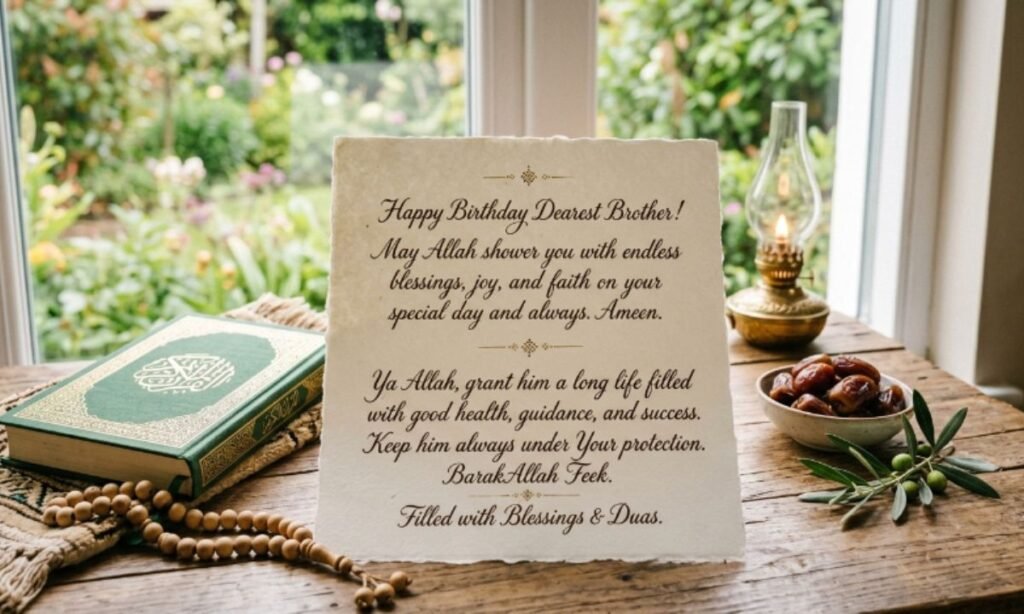 Happy Birthday Dearest Brother!
May Allah shower you with endless
blessings, joy, and faith on your
special day and always. Ameen.
Ya Allah, grant him a long life filled
with good health, guidance, and success.
Keep him always under Your protection.
BarakAllah Feek.
Filled with Blessings & Duas.